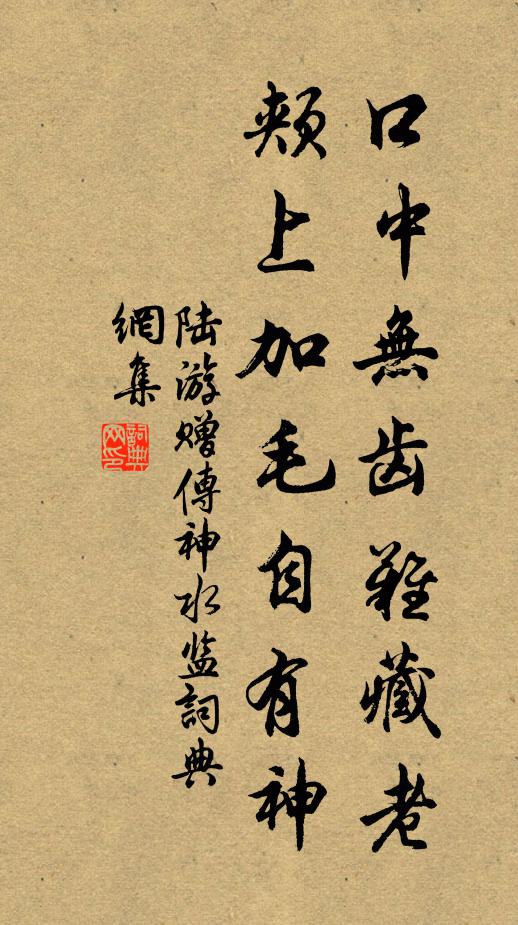 口中無齿難藏老
頰上加毛自有神
陆游赠傳神水监詞典
網集
詞典網印